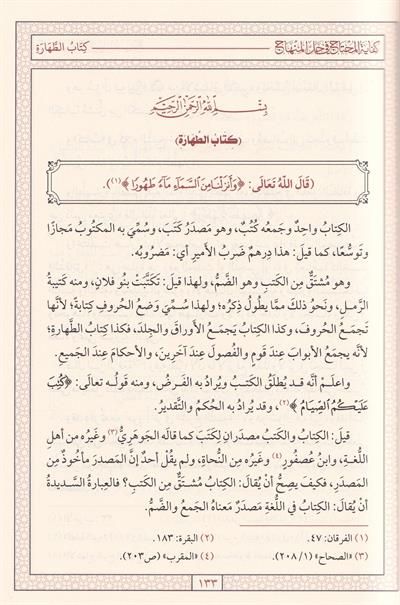 كفاية المحتاج في حل المنهاج
كِتَابُ الطَّهَارَة
بِسْمِ اللهِ الرَّحْمَنِ الرَّحِيمِ
(كِتَابُ الطَّهَارَةِ)
(قَالَ اللهُ تَعَالَى: ﴿وَأَنزَلْنَا مِنَ السَّمَآءِ مَآءً طَهُورًا﴾(١)).
الكِتَابُ واحِدٌ وجَمعُه كُتُبٌ، وهو مَصدَرُ كَتَبَ، وسُمِّيَ به المَكتُوبُ مَجازًا
وتَوسُّعًا، كما قيلَ: هذا دِرهمٌ ضَربُ الأَميرِ أي: مَضرُوبُه.
وهو مُشتَقٌّ مِن الكَتبِ وهو الضَّمُّ، ولهذا قيلَ: تَكتَّبَتْ بنُو فلانٍ، ومنه كَتيبةُ
الرَّملِ، ونَحوُ ذلكَ ممَّا يطُولُ ذِكرُه؛ ولهذا سُمِّيَ وَضعُ الحُروفِ كِتابةً؛ لأنَّها
تَجمَعُ الحُروفَ، وكذا الكِتابُ يَجمَعُ الأوراقَ والجِلدَ، فكذا كِتابُ الطَّهارةِ؛
لأنَّه يجمَعُ الأبوابَ عندَ قَومٍ والفُصولَ عندَ آخرِينَ، والأحكامَ عندَ الجَميعِ.
واعلَمْ أنَّه قد يُطلَقُ الكَتبُ ويُرادُ به الفَرضُ، ومنه قَولُه تعالى: ﴿كُتِبَ
عَلَيْكُمُ الصِّيَامُ﴾(٢)، وقد يُرادُ به الحُكمُ والتَّقديرُ.
قيلَ: الكِتابُ والكَتبُ مصدَرانِ لِكَتَبَ كما قالَه الجَوهَريُّ(٣) وغَيرُه مِن أهلِ
اللُّغةِ، وابنُ عُصفُورٍ(٤) وغَيرُه مِن النُّحاةِ، ولم يقُلْ أحدٌ إنَّ المَصدَرَ مأخُوذٌ مِن
المَصدَرِ، فكَيفَ يصِحُّ أنْ يُقالَ: الكِتابُ مُشتَقٌّ مِن الكَتبِ؟ فالعِبارةُ السَّديدةُ
أنْ يُقالَ: الكِتابُ في اللُّغةِ مَصدَرٌ مَعناهُ الجَمعُ والضَّمُّ.
(١) الفرقان: ٤٧. (٢) البقرة: ١٨٣.
(٣) «الصحاح» (١/ ٢٠٨). (٤) «المقرب» (ص٢٠٣).
١٣٣